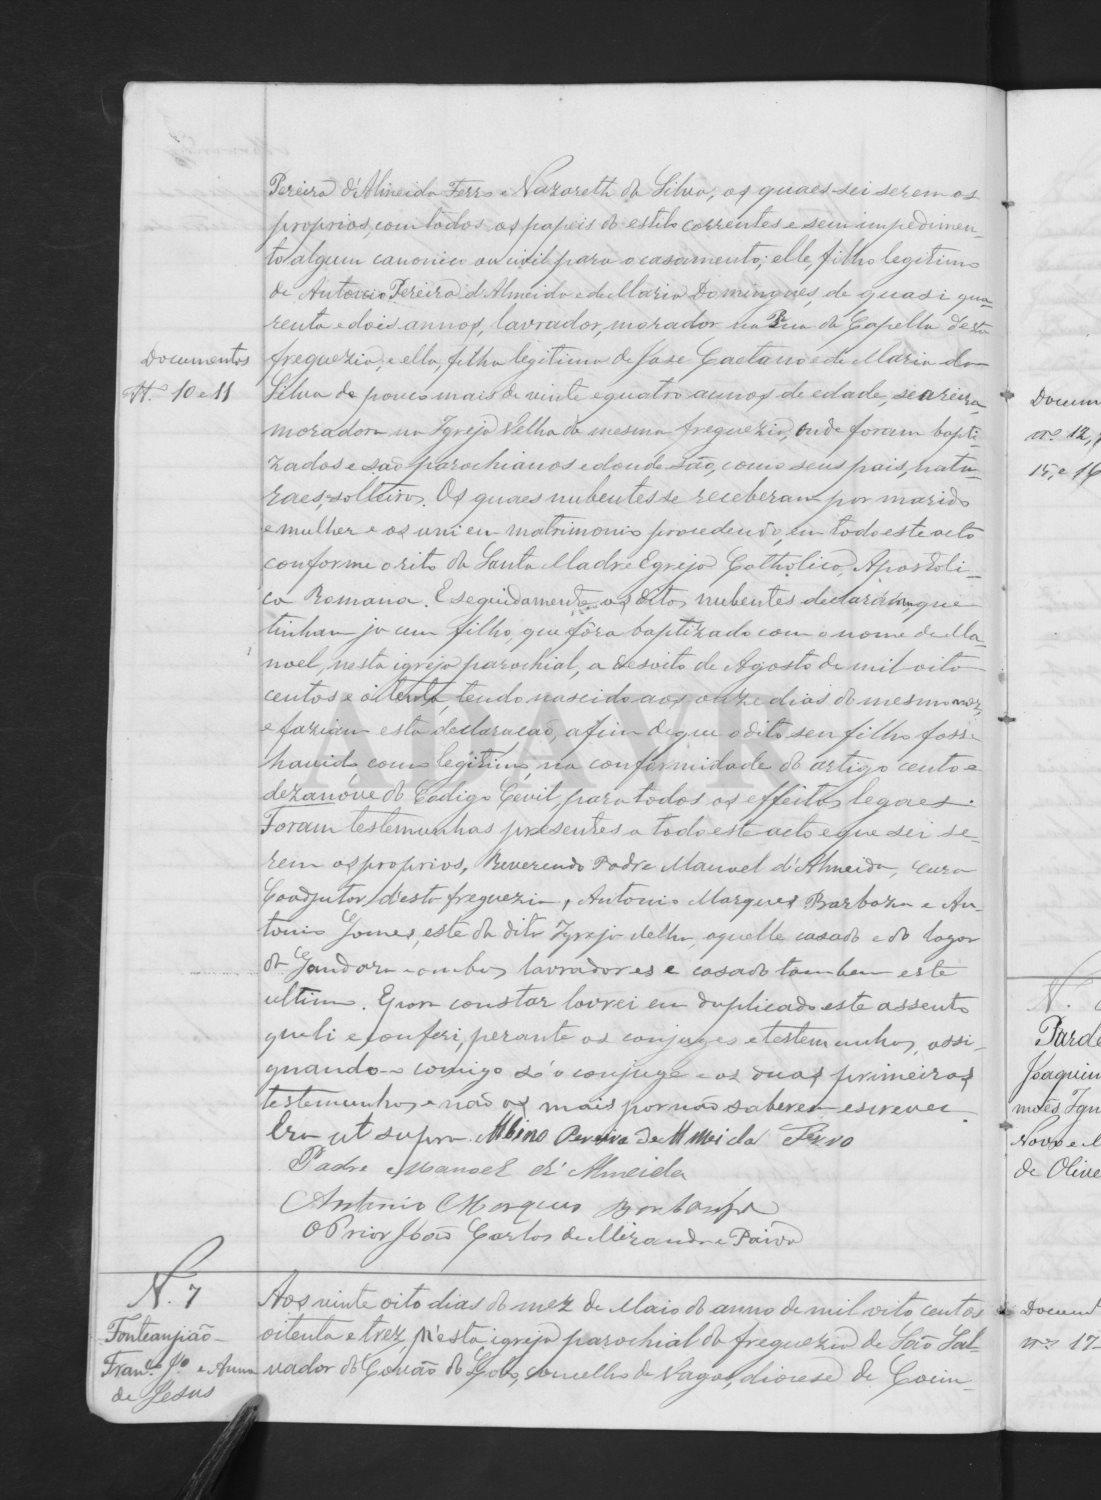 Pereira d'Almeida Ferro e Nazareth da Silva; os quaes sei serem os
proprios, com todos os papeis do estilo correntes e sem impedimen-
to algum canonico ou civil para o casamento; elle, filho legitimo
de Antonio Pereira d'Almeida e de Maria Domingues, de quasi qua-
renta e dois annos, lavrador, morador na Rua da Capella d'esta
Documentos
Nos 10 e 11
freguezia, e ella, filha legitima de Jose Caetano e de Maria da
Silva de pouco mais de vinte e quatro annos de edade, seareira,
moradora na Igreja Velha da mesma freguezia, onde foram bapti-
zados e são parochianos e donde são, como seus pais, natu-
raes, solteiros. Os quaes nubentes se receberam por marido
e mulher e os uni em matrimonio procedendo, em todo este acto
conforme o rito da Santa Madre Egreja Catholica, Apostoli-
ca Romana. E seguidamente os ditos nubentes declaram, que
tinham ja um filho, que fôra baptizado com o nome de Ma-
noel, nesta igreja parochial, a desoito de Agosto de mil oito
centos e oitenta, tendo nascido aos onze dias do mesmo mez,
e faziam esta declaração, afim de que o dito seu filho fosse
havido como legitimo, na conformidade do artigo cento e
dezanóve do Codigo Cevil, para todos os effeitos legaes.
Foram testemunhas presentes a todo este acto e que sei se-
rem os proprios, Reverendo Padre Manoel d'Almeida, cura
Coadjutor d'esta freguezia, Antonio Marques Barboza e An-
tonio Gomes, este da dita Igreja velha, aquelle casado e do logar
da Gandara e ambos lavradores e casado tambem este
ultimo. E para constar lavrei em duplicado este assento
que li e conferi, perante os conjuges e testemunhas, assi-
gnando-o comigo só o conjuge e as duas primeiras
testemunhas e não os mais por não saberem escrever.
Era ut supra. Albino Pereira de Almeida Ferro
Padre Manoel d'Almeida
Antonio Marques Barboza
O Prior João Carlos de Miranda e Paiva
N. 7
Fonteanjião
Franco Jo e Anna
de Jesus
Aos vinte oito dias do mez de Maio do anno de mil oito centos
oitenta e trez, n'esta igreja parochial da freguezia de São Sal-
vador do Covão do Lobo, concelho de Vagos, diocese de Coim-
Docum
nos 12,
15, e 16
N.
Parde
Joaquim
Novo e M
de Olive
Document
nos 17-
ADAVR